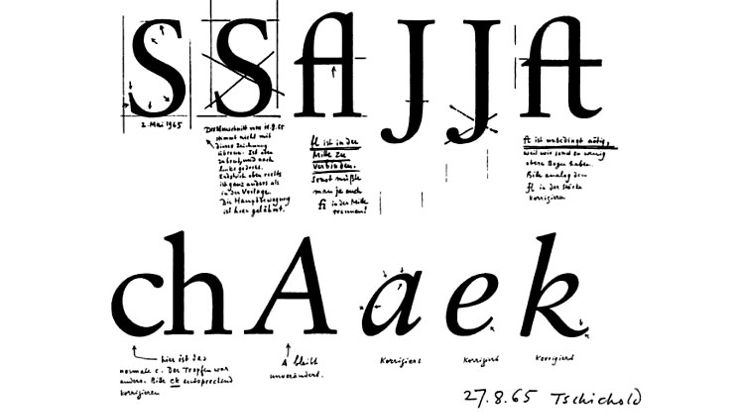 SSflJJft
2. Mai 1965
Der Umschnitt vom 11.8.65
stimmt nicht mit
dieser Zeichnung
überein. Ist oben
und nach
links gedreht.
Endstrich oben rechts
ist ganz anders als
in der Vorlage.
Die Hauptbewegung
ist hier gelähmt.
fl ist in der
Mitte zu
verbinden.
Sonst müßte
man ja auch
fi in der Mitte
trennen!
ft ist unbedingt nötig,
weil wir sonst zu wenig
obere Bogen haben.
Bitte analog dem
fl in der Stärke
korrigieren
chAaek
hier ist das
normale c. Der Tropfen war
anders. Bitte ck entsprechend
korrigieren
A bleibt
unverändert.
Korrigiert
Korrigiert
Korrigiert
27.8.65 Tschichold